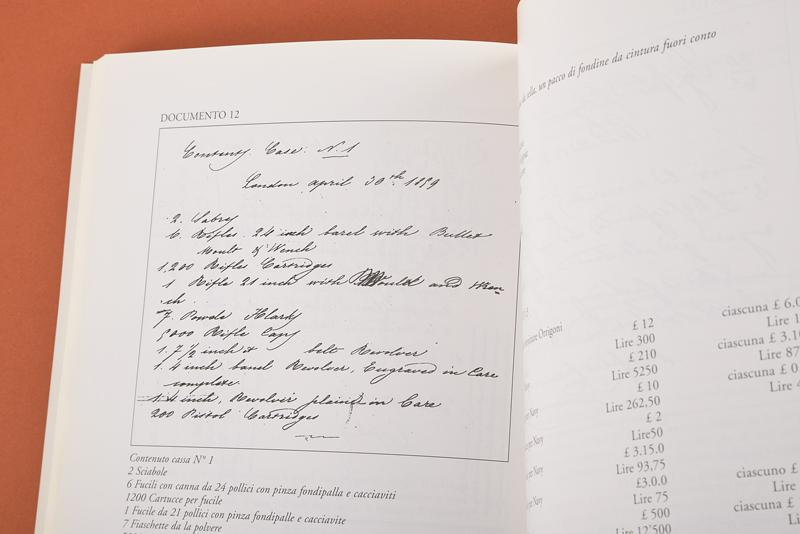 DOCUMENTO 12
Contents Case: N. 1
London april 30th 1859
2. Sabrs
6. Rifles 24 inch barel with Bullet
Moult & Wench
1,200 Rifles Cartridges
1 Rifle 21 inch with Moult and Wen-
ch
7. Powde Flasks
5000 Rifle Caps
1. 7 1/2 inch belt Revolver
1. 4 inch barel Revolver, Engraved in Care
complete.
1. 4 inch, Revolvir plaine in Care
200 Pistol Cartridges
Contenuto cassa N° 1
2 Sciabole
6 Fucili con canna da 24 pollici con pinza fondipalla e cacciaviti
1200 Cartucce per fucile
1 Fucile da 21 pollici con pinza fondipalle e cacciavite
7 Fiaschette da la polvere
da sella, un pacco di fondine da cintura fuori conto
Ortigoni
£ 12
ciascuna £ 6.0
Lire 300
Lire 1
£ 210
ciascuna £ 3.1
Lire 5250
Lire 87
£ 10
ciascuna £ 0
per Navy
Lire 262,50
Lire
£ 2
per Navy
Lire50
£ 3.15.0
per Navy
Lire 93.75
ciascuno £
£3.0.0
Lire
per Navy
Lire 75
ciascuna £
£ 500
Lire 12'500